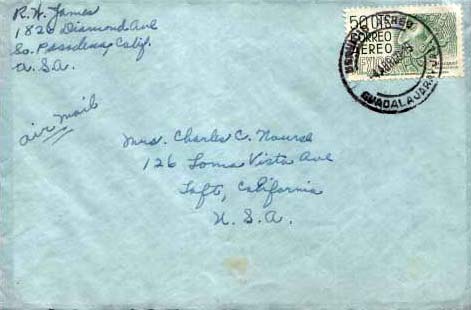 R.W. James
1826 Diamond Ave
So. Pasadena, Calif.
U.S.A.
50
CORREO
AEREO
GUADALAJARA, JAL.
air mail
Mrs. Charles C. Nourse
126 Loma Vista Ave
Taft, California
U.S.A.